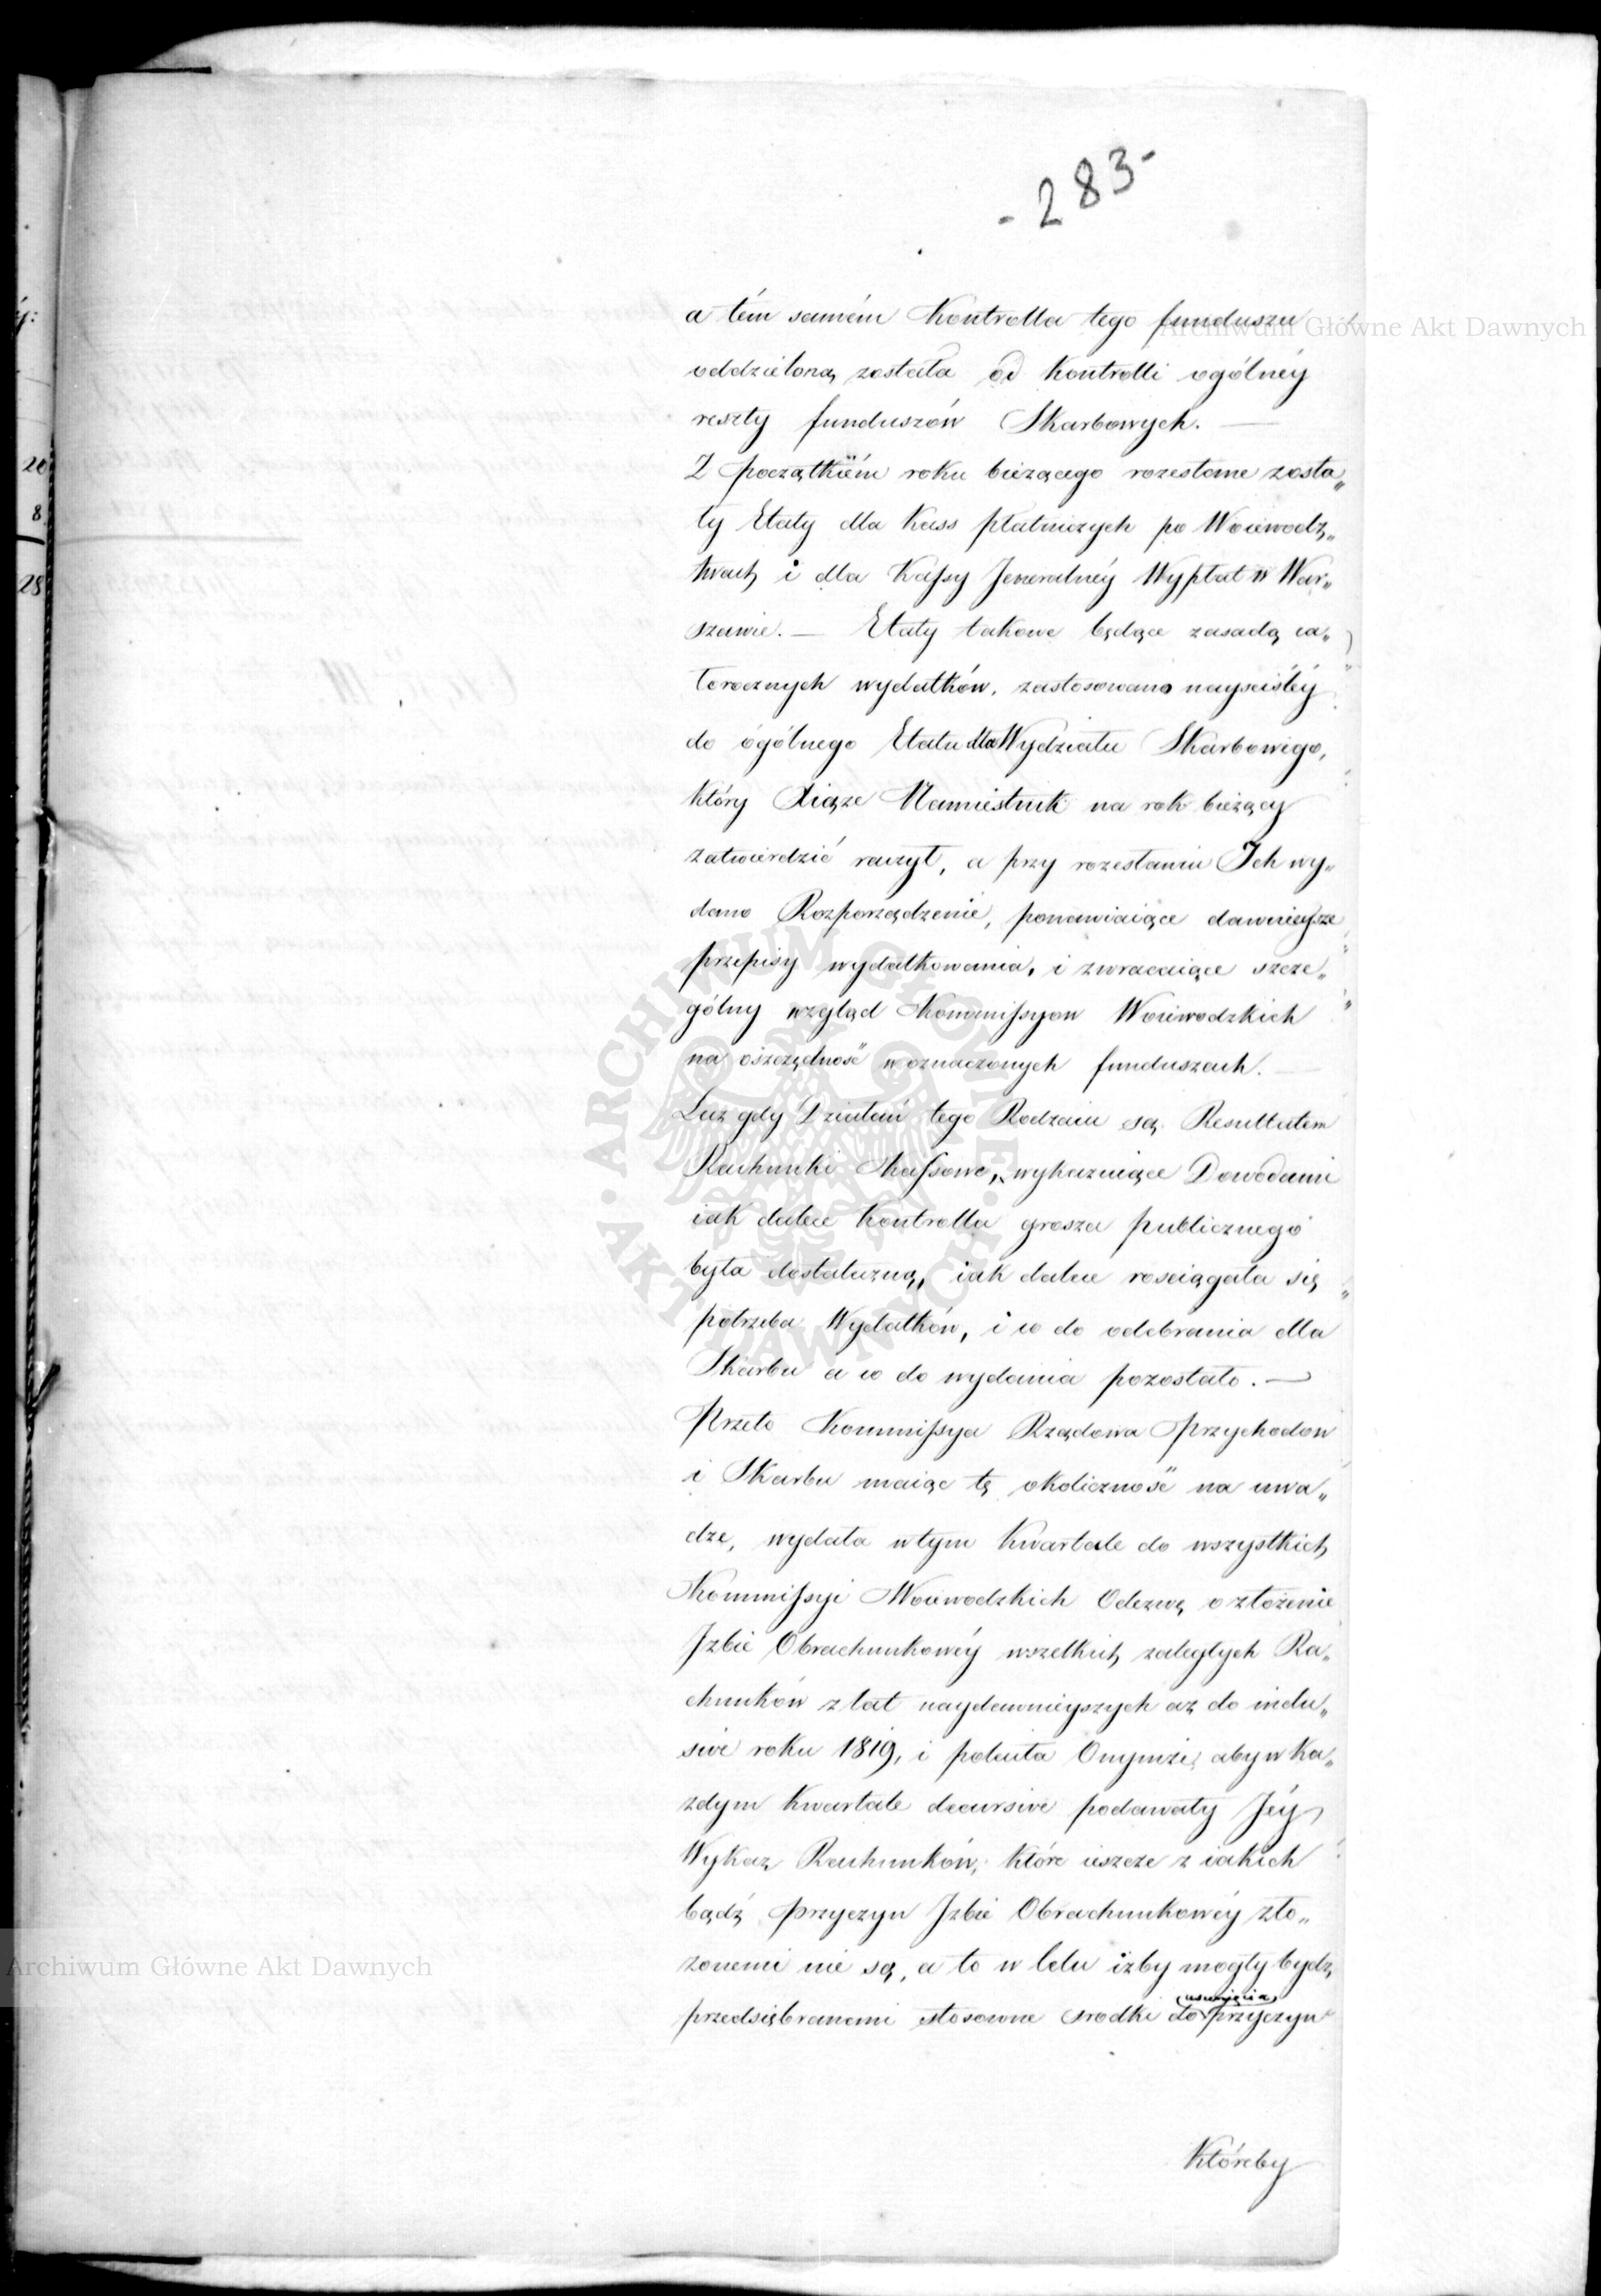 - 283 -
a tém samém Kontrolla tego funduszu
oddzieloną została od Kontrolli ogólnéy
reszty funduszów Skarbowych. —
Z początkiém roku bieżącego rozesłane zosta„
ły Etaty dla Kass płatniczych po Woiewodz„
twach i dla Kassy Jeneralnéy Wypłat w War„
szawie. — Etaty takowe będące zasadą ca„
łorocznych wydatków, zastosowano nayściśléy
do ogólnego Etatu dla Wydziału Skarbowego,
który Xiąże Namiestnik na rok bieżący
zatwierdzić raczył, a przy rozesłaniu Ich wy„
dano Rozporządzenie, ponawiaiące dawnieysze
przepisy wydatkowania, i zwracaiące szcze„
gólny wzgląd Kommissyow Woiewodzkich
na oszczędność w oznaczonych funduszach. —
Lecz gdy Działań tego Rodzaiu są Resultatem
Rachunki Kassowe, wykazuiące Dowodami
iak dalece Kontrolla grosza publicznego
była dostateczną, iak dalece rosciągała się
potrzeba Wydatków, i co do odebrania dla
Skarbu a co do wydania pozostało. —
Przeto Kommissya Rządowa Przychodow
i Skarbu maiąc tę okoliczność na uwa„
dze, wydała w tym Kwartale do wszystkich
Kommissyi Woiewodzkich Odezwę o złożenie
Izbie Obrachunkowéy wszelkich zaległych Ra„
chunków z lat naydawnieyszych aż do inclu„
sive roku 1819, i poleciła Onymże, aby w ka„
zdym Kwartale decursive podawały Jéy
Wykaz Rachunków, które ieszcze z iakich
bądź przyczyn Izbie Obrachunkowéy zło„
zonemi nie są, a to w celu iżby mogły bydz
przedsiębranemi stosowne srodki do usunięcia przyczyn
Któreby
ý:
20
8
28
Archiwum Główne Akt Dawnych
Archiwum Główne Akt Dawnych
ARCHIWUM GŁÓWNE · AKT DAWNYCH ·